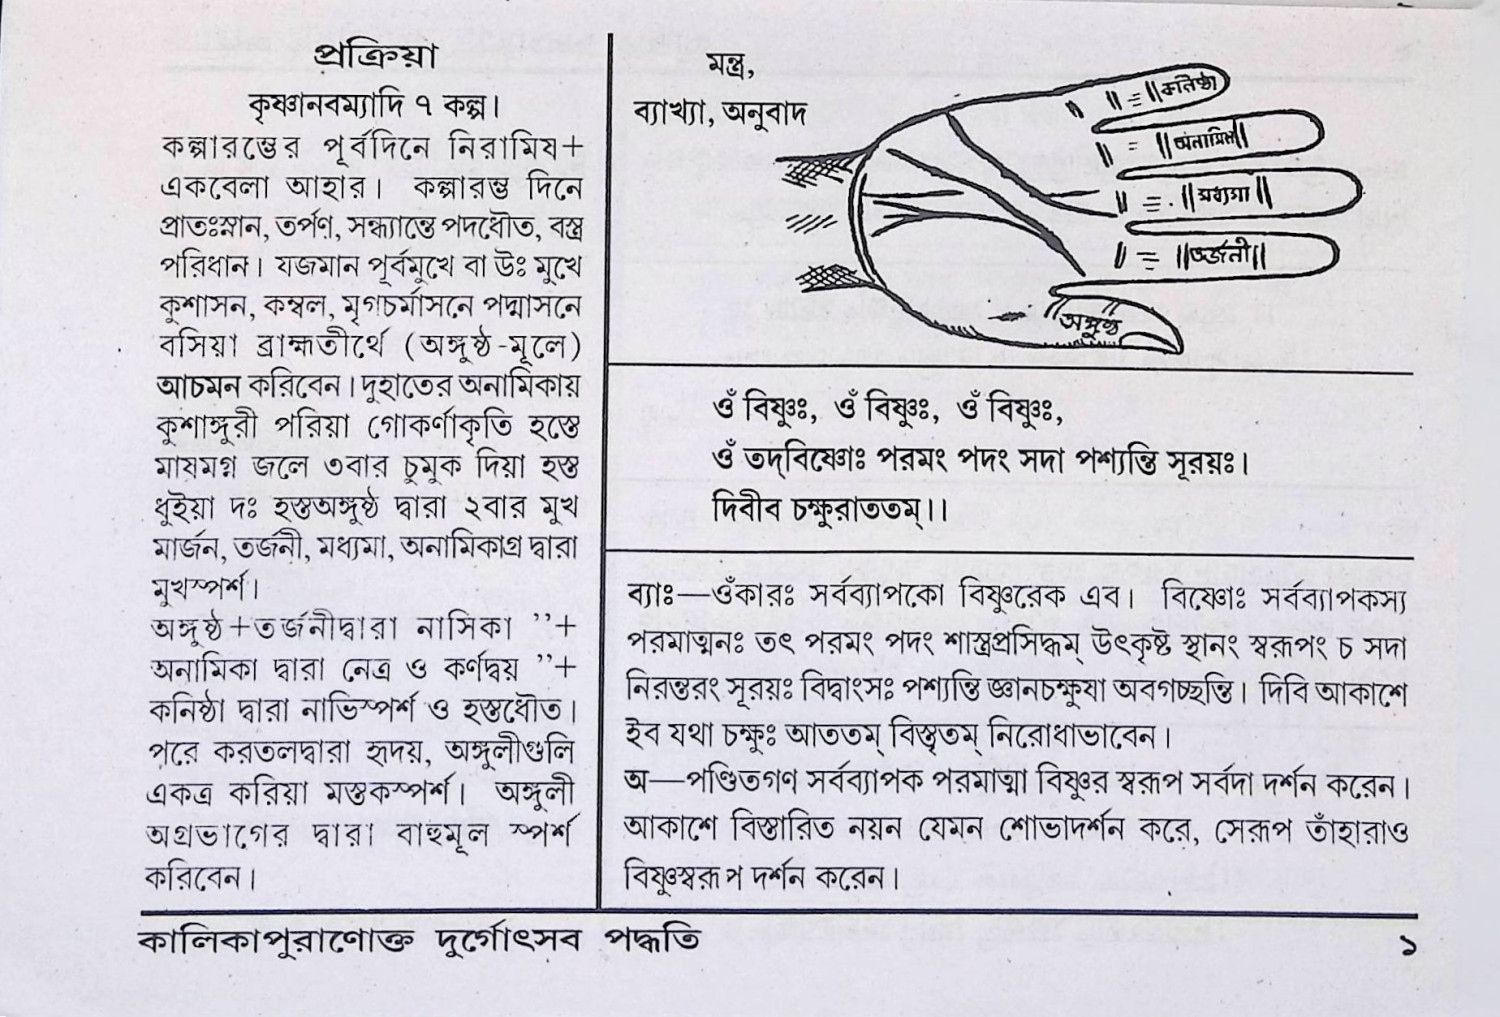 প্রক্রিয়া
কৃষ্ণানবম্যাদি ৭ কল্প।
কল্পারম্ভের পূর্বদিনে নিরামিষ+
একবেলা আহার। কল্পারম্ভ দিনে
প্রাতঃস্নান, তর্পণ, সন্ধ্যান্তে পদধৌত, বস্ত্র
পরিধান। যজমান পূর্বমুখে বা উঃ মুখে
কুশাসন, কম্বল, মৃগচর্মাসনে পদ্মাসনে
বসিয়া ব্রাহ্মতীর্থে (অঙ্গুষ্ঠ-মূলে)
আচমন করিবেন। দুহাতের অনামিকায়
কুশাঙ্গুরী পরিয়া গোকর্ণাকৃতি হস্তে
মাষমগ্ন জলে ৩বার চুমুক দিয়া হস্ত
ধুইয়া দঃ হস্তঅঙ্গুষ্ঠ দ্বারা ২বার মুখ
মার্জন, তর্জনী, মধ্যমা, অনামিকাগ্র দ্বারা
মুখস্পর্শ।
অঙ্গুষ্ঠ+তর্জনীদ্বারা নাসিকা ”+
অনামিকা দ্বারা নেত্র ও কর্ণদ্বয় ”+
কনিষ্ঠা দ্বারা নাভিস্পর্শ ও হস্তধৌত।
পরে করতলদ্বারা হৃদয়, অঙ্গুলীগুলি
একত্র করিয়া মস্তকস্পর্শ। অঙ্গুলী
অগ্রভাগের দ্বারা বাহুমূল স্পর্শ
করিবেন।
মন্ত্র,
ব্যাখ্যা, অনুবাদ
কনিষ্ঠা
অনামিকা
মধ্যমা
তর্জনী
অঙ্গুষ্ঠ
ওঁ বিষ্ণুঃ, ওঁ বিষ্ণুঃ, ওঁ বিষ্ণুঃ,
ওঁ তদ্‌বিষ্ণোঃ পরমং পদং সদা পশ্যন্তি সূরয়ঃ।
দিবীব চক্ষুরাততম্।।
ব্যাঃ—ওঁকারঃ সর্বব্যাপকো বিষ্ণুরেক এব। বিষ্ণোঃ সর্বব্যাপকস্য
পরমাত্মনঃ তৎ পরমং পদং শাস্ত্রপ্রসিদ্ধম্ উৎকৃষ্ট স্থানং স্বরূপং চ সদা
নিরন্তরং সূরয়ঃ বিদ্বাংসঃ পশ্যন্তি জ্ঞানচক্ষুষা অবগচ্ছন্তি। দিবি আকাশে
ইব যথা চক্ষুঃ আততম্ বিস্তৃতম্ নিরোধাভাবেন।
অ—পণ্ডিতগণ সর্বব্যাপক পরমাত্মা বিষ্ণুর স্বরূপ সর্বদা দর্শন করেন।
আকাশে বিস্তারিত নয়ন যেমন শোভাদর্শন করে, সেরূপ তাঁহারাও
বিষ্ণুস্বরূপ দর্শন করেন।
কালিকাপুরাণোক্ত দুর্গোৎসব পদ্ধতি
১